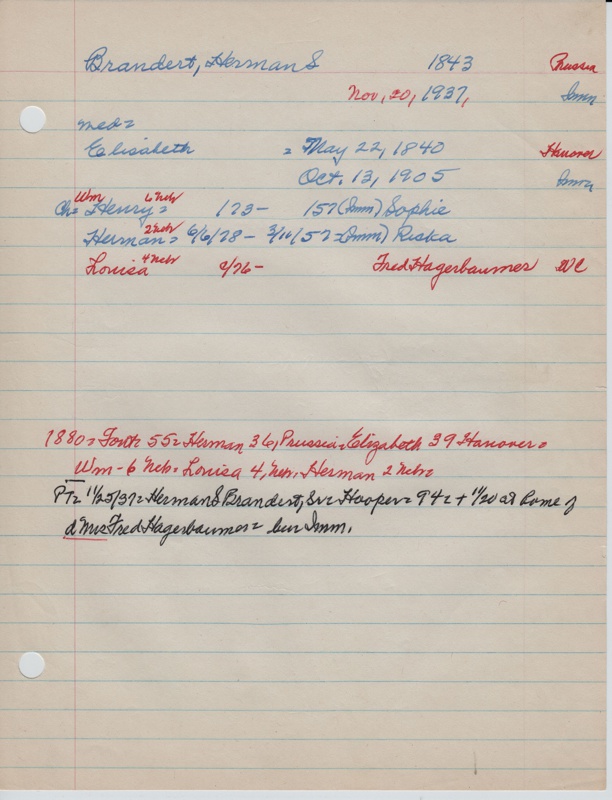 Brandert, Herman S 1843 Prussia
Nov, 20, 1937, Imm
med=
Elisabeth = May 22, 1840 Hanover
Oct. 13, 1905 Imm
Wm 6 Nebr
Ch= Henry= 173- 157 (Imm) Sophie
2 Nebr
Herman= 6/6/78 - 3/11/57= (Imm) Ricka
4 Nebr
Louisa 2/76- Fred Hagerbaumer WC
1880= Font= 55= Herman 36, Prussia= Elizabeth 39 Hanover=
Wm - 6 Neb= Louisa 4, Neb, Herman 2 Neb=
FT= 11/25/37= Herman S Brandert, Sr= Hooper= 94= + 11/20 at home of
d Mrs Fred Hagerbaumer= bur Imm.